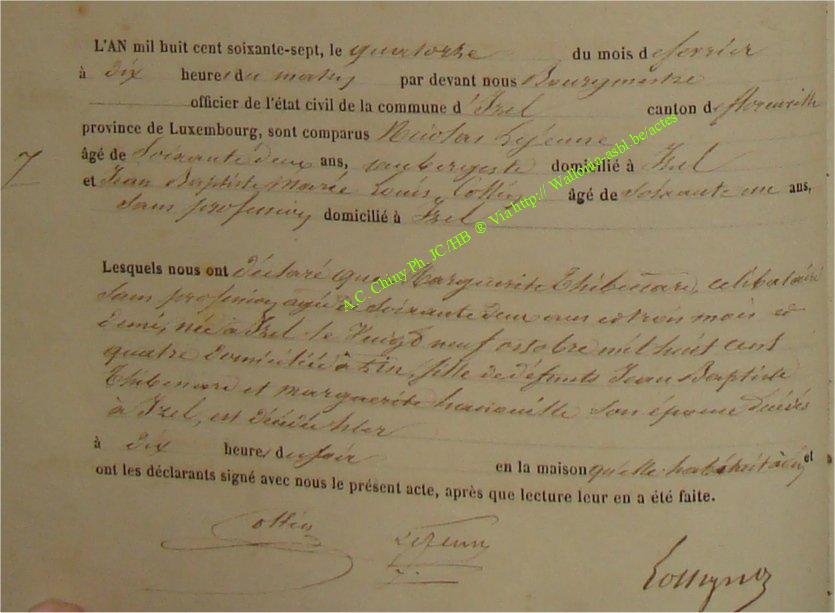 L'AN mil huit cent soixante-sept, le quatorze du mois de fevrier
à dix heures du matin par devant nous Bourgmestre
officier de l'état civil de la commune d'Izel canton de florenville
province de Luxembourg, sont comparus Nicolas Lejeune
âgé de soixante deux ans, aubergiste domicilié à Izel
7
et Jean Baptiste Marie Louis Collin âgé de soixante un ans,
sans profession domicilié à Izel
A.C. Chiny Ph. JC/HB ® Via http:// Wallonia-asbl.be/actes
Lesquels nous ont déclaré que Marguerite Thibessard, celibataire
sans profession, agée de soixante deux ans et trois mois et
demi, née à Izel le Vingt neuf octobre mil huit cent
quatre domiciliée à Izel, fille de defunts Jean Baptiste
et marguerite son épouse décédés
à Izel, est décédée hier
à dix heures du soir en la maison qu'elle habitait à et
ont les déclarants signé avec nous le présent acte, après que lecture leur en a été faite.
Collin Lejeune